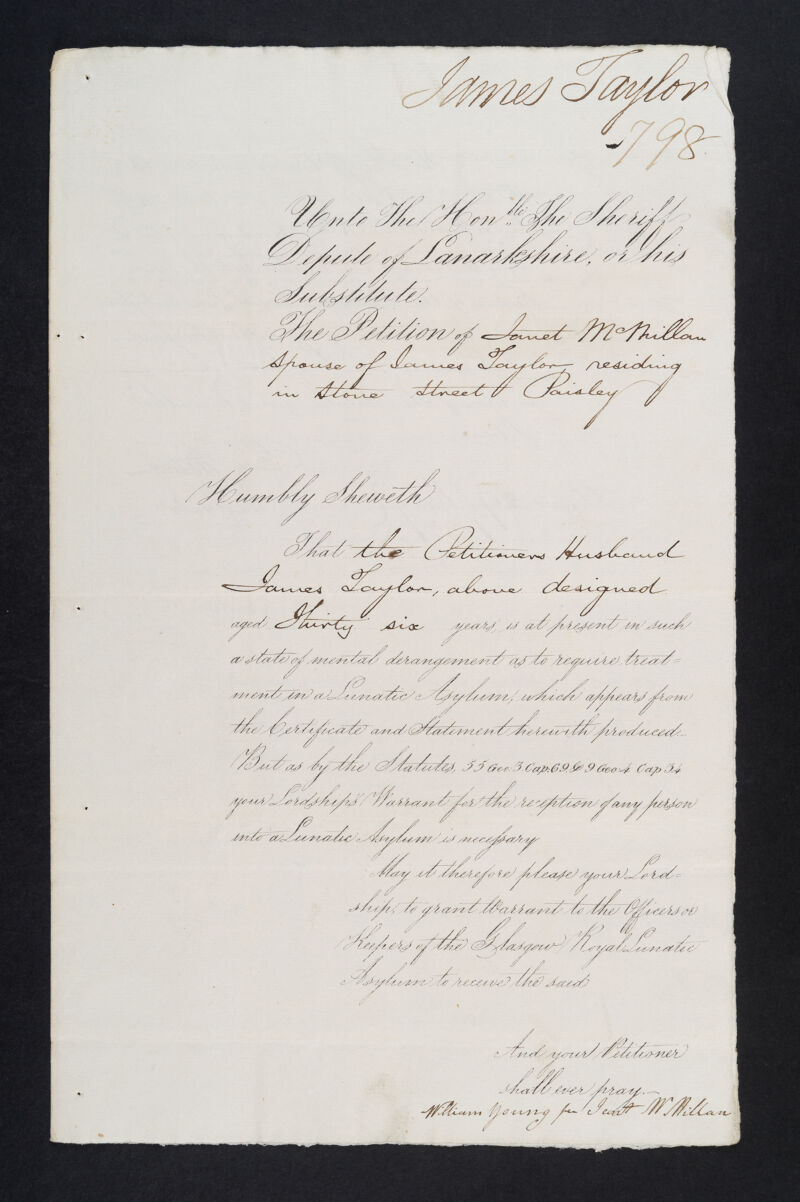 James Taylor
798
Unto The Honble. The Sheriff
Depute of Lanarkshire, or his
Substitute.
The Petition of Janet McMillan
Spouse of James Taylor, residing
in Stone Street Paisley
Humbly Sheweth
That the Petitioners Husband
James Taylor, above designed
aged Thirty six years, is at present in such
a state of mental derangement as to require treat=
ment in a Lunatic Asylum, which appears from
the Certificate and Statement herewith produced.
But as by the Statutes, 55 Geo: 3 Cap: 69 & 9 Geo 4 Cap 34
your Lordships Warrant for the reception of any person
into a Lunatic Asylum is necessary
May it therefore please your Lord=
ship, to grant Warrant to the Officers or
Keepers of the Glasgow Royal Lunatic
Asylum to receive the said
And your Petitioner
shall ever pray
William Young for Jant McMillan